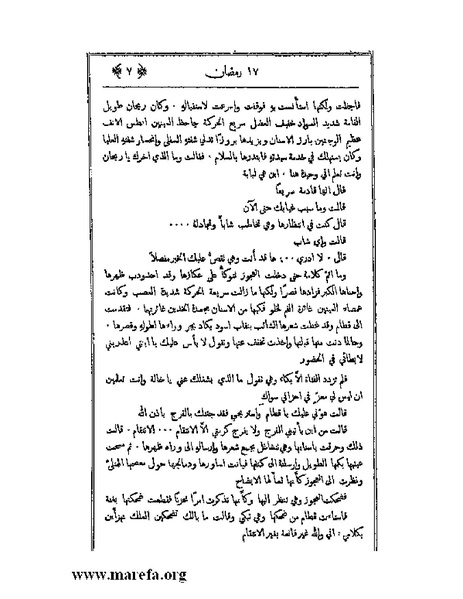 ١٧ رمضان ﴿ ٧ ﴾
فاجفلت ولكنها استأنست بو فوقفت واسرعت لاستقبالو ٠ وكان ريحان طويل
القامة شديد السواد خفيف العضل سريع الحركة جاحظ العينين افطس الانف
عظيم الوجنتين بارز الاسنان ويزيدها بروزًا تدلي شفتو السفلى وانحصار شفتو العليا
وكان يستهلك في خدمة سيدتو فابتدرها بالسلام ٠ فقالت وما الذي اخرك يا ريحان
وانت تعلم اني وحيدة هنا ٠ اين هي لبابة
قال انها قادمة سريعًا
قالت وما سبب غيابك حتى الآن
قال كنت في انتظارها وهي تخاطب شابًا وتجادلة ٠٠٠٠
قالت واي شاب
قال ٠ لا ادري ٠٠؛ ها قد أتت وهي تقصُّ عليك الخبر مفصلاً
وما اتم كلامة حتى دخلت العجوز تتوكأ على عكازها وقد احدودب ظهرها
واحناها الكبر فزادها قصرًا ولكنها ما زالت سريعة الحركة شديدة العصب وكانت
عمصاء العينين غائرة الفم لخلو فكيها من الاسنان مجعدة الخدين غائرتيها ٠ فتقدمت
الى قطام وقد غطت شعرها الشائب بنقاب اسود يكاد يجر وراءها لطولو وقصرها ٠
وحالما دنت منها قبلتها واخذت تخفف عنها وتقول لا بأس عليك يا ابنتي اعذريني
لابطائي في الحضور
فلم تزدد الفتاة الاَّ بكاء وهي تقول ما الذي يشغلك عني يا خالة وانت تعلمين
ان ليس لي معزٍّ في احزاني سواك
قالت هوّني عليك يا قطام واستريحي فقد جئتك بالفرج باذن الله
قالت من اين يأتيني الفرج ولا يفرج كربتي الاَّ الانتقام ٠٠٠ الانتقام ٠ قالت
ذلك وحرقت باسنانها وهي تتشاغل بجمع شعرها وارسالو الى وراء ظهرها ٠ ثم مسحت
عينيها بكمها الطويل وارسلتة الى كتفها فبانت اساورها ودمالجها حول معصمها الممتلئ
ونظرت الى العجوز كأنها تسألها الايضاح
فضحكت العجوز وهي تنظر اليها وكأنها تذكرت امرًا محزنًا فقطعت ضحكتها بغتة
فاستاءت قطام من ضحكها وهي تبكي وقالت ما بالك تضحكين العلك تهزأين
بكلامي ؛ اني والله غير قانعة بغير الانتقام
www.marefa.org